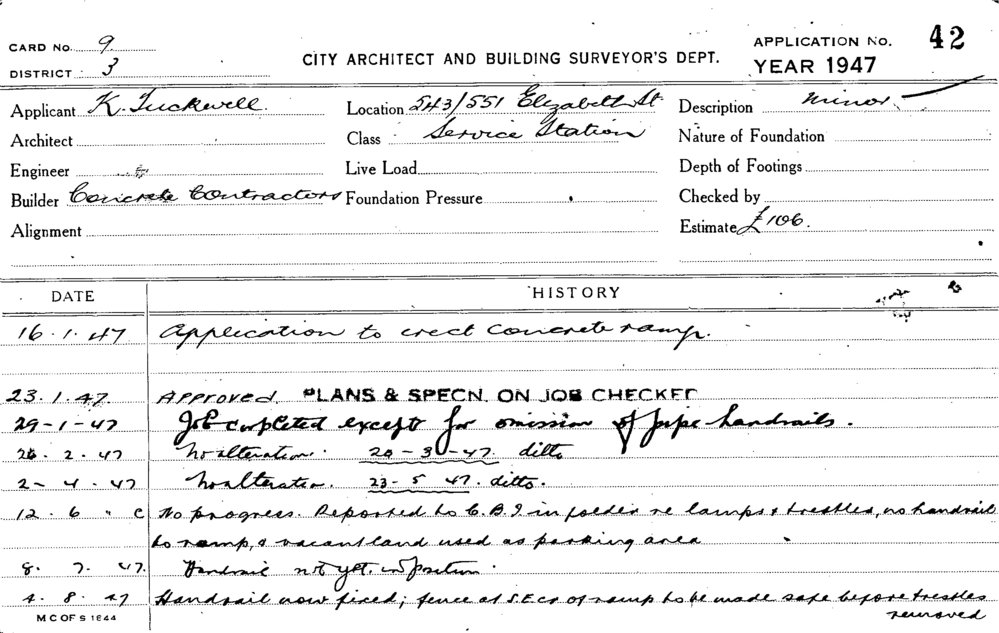 CARD NO. 9
DISTRICT 3
CITY ARCHITECT AND BUILDING SURVEYOR'S DEPT.
APPLICATION NO. 42
YEAR 1947
Applicant K. Tuckwell
Location 543/551 Elizabeth St
Description Minor
Architect
Class Service Station
Nature of Foundation
Engineer
Live Load
Depth of Footings
Builder Concrete Contractors
Foundation Pressure
Checked by
Alignment
Estimate £106.
DATE HISTORY
16.1.47 Application to erect concrete ramp.
23.1.47 Approved. PLANS & SPECN. ON JOB CHECKED
29-1-47 Job completed except for omission of pipe handrails.
26.2.47 No alteration. 20-3-47. ditto
2-4-47 No alteration. 23-5 47. ditto.
12.6 " C No progress. Reported to C.B.I in folder re lamps & trestles, no handrail
to ramp, & vacant land used as parking area
8.7.47. Handrail not yet in position.
4.8.47 Handrail now fixed; fence at S.E cr of ramp to be made safe before trestles
removed
M C OF S 1644